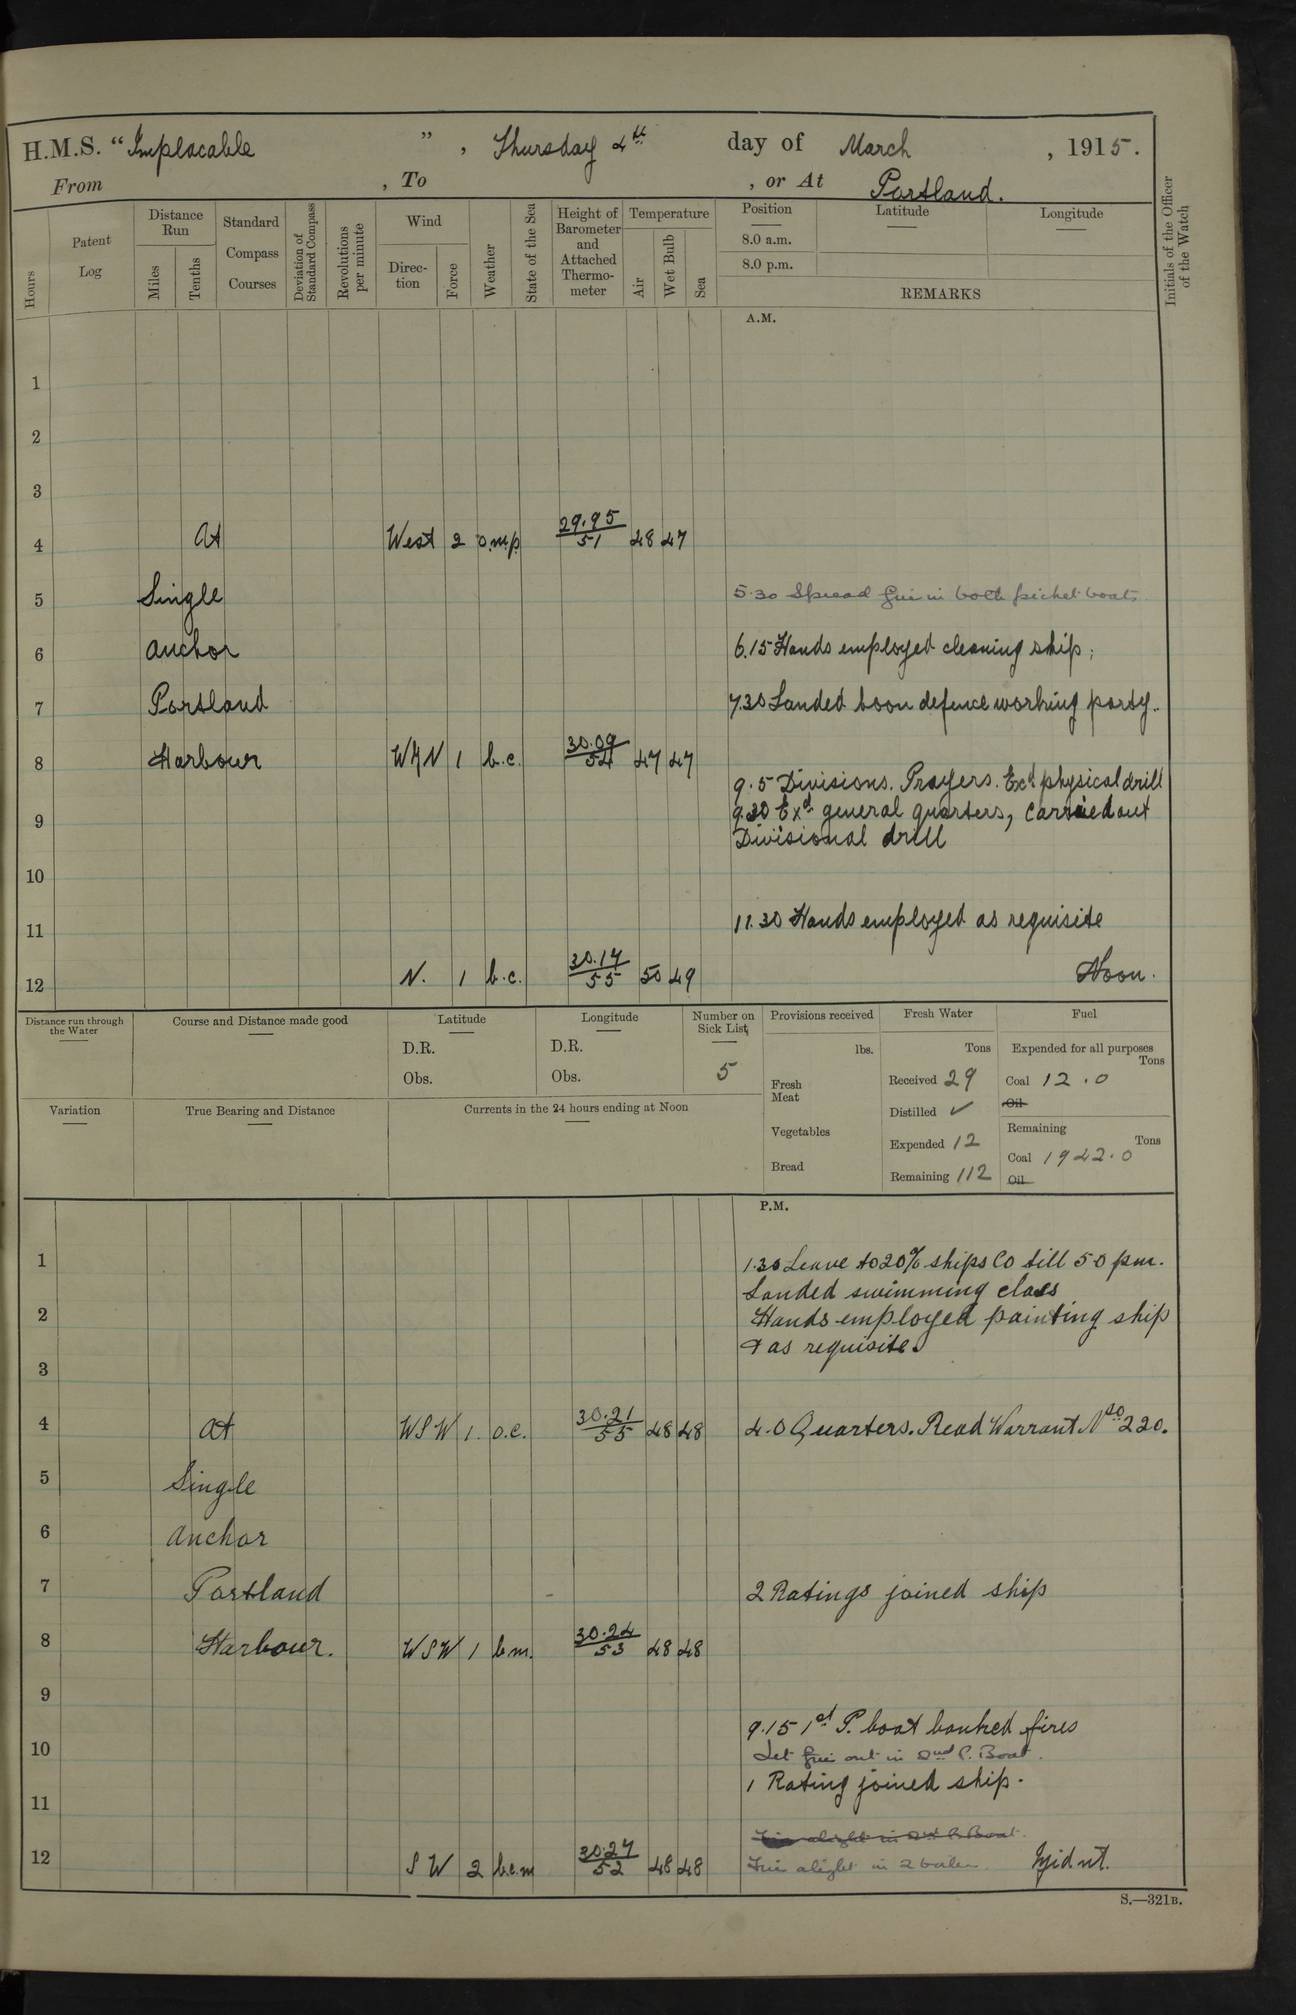 H.M.S. "Implacable ", Thursday 4th day of March, 1915.
From , To , or At Portland.
Hours
Patent Log
Distance Run
Miles
Tenths
Standard Compass Courses
Deviation of Standard Compass
Revolutions per minute
Wind
Direc-tion
Force
Weather
State of the Sea
Height of Barometer and Attached Thermo-meter
Temperature
Air
Wet Bulb
Sea
Position
8.0 a.m.
8.0 p.m.
Latitude
Longitude
REMARKS
Initials of the Officer of the Watch
A.M.
1
2
3
4 At West 2 o.m.p. 29.95/51 48 47
5 Single 5.30 Spread fires in both picket boats
6 anchor 6.15 Hands employed cleaning ship;
7 Portland 7.30 Landed boom defence working party.
8 Harbour 1 b.c. 30.09/54 47 47
9.5 Divisions. Prayers. Exd physical drill
9 9.30 Exd general quarters, carried out
Divisional drill
10
11 11.30 Hands employed as requisite
12 N. 1 b.c. 30.17/55 50 49 Noon.
Distance run through the Water
Course and Distance made good
Latitude
D.R.
Obs.
Longitude
D.R.
Obs.
Number on Sick List
5
Provisions received
lbs.
Fresh Meat
Vegetables
Bread
Fresh Water
Tons
Received 29
Distilled ✓
Expended 12
Remaining 112
Fuel
Expended for all purposes
Tons
Coal 12.0
Oil
Remaining
Tons
Coal 1942.0
Oil
Variation
True Bearing and Distance
Currents in the 24 hours ending at Noon
P.M.
1 1.30 Leave to 20% ships Co till 5.0 pm.
Landed swimming class
2 Hands employed painting ship
& as requisite.
3
4 At WSW 1. o.c. 30.21/55 48 48 4.0 Quarters. Read Warrant No 220.
5 Single
6 anchor
7 Portland 2 Ratings joined ship
8 Harbour. WSW 1 b.m. 30.24/53 48 48
9
9.15 1st P. boat banked fires
10 Let fires out in 2nd P. Boat.
1 Rating joined ship.
11
alight in 2nd P. Boat.
12 SW 2 b.c.m 30.27/52 48 48 Fires alight in 2 boilers Midnt.
S.—321B.